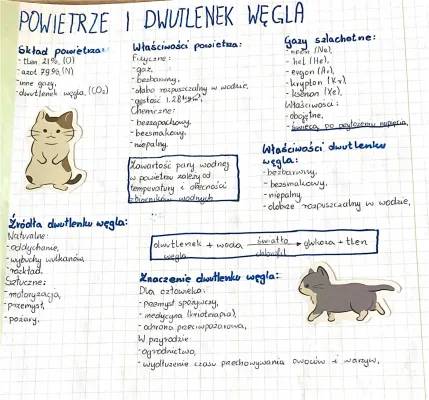 POWIETRZE I DWUTLENEK WĘGLA
Skład powietrza:
- tlen 21%, (O)
- azot 79%, (N)
- inne gazy,
- dwutlenek węgla, (CO₂)
Właściwości powietrza:
Fizyczne:
- gaz,
- bezbarwny,
- słabo rozpuszczalny w wodzie,
- gęstość
Chemiczne:
- bezzapachowy,
- bezsmakowy,
- niepalny,
Zawartość pary wodnej
w powietrzu zależy od
temperatury i obecności
zbiorników wodnych
Gazy szlachetne:
- neon (Ne),
- hel (He),
- argon (Ar),
- krypton (Kr),
- ksenon (Xe),
Właściwości:
- obojętne,
- świecą po przyłożeniu napięcia,
Właściwości dwutlenku
węgla:
- bezbarwny,
- bezsmakowy,
- niepalny,
- dobrze rozpuszczalny w wodzie,
Źródła dwutlenku węgla:
Naturalne:
- oddychanie,
- wybuchy wulkanów,
- rozkład,
Sztuczne:
- motoryzacja,
- przemysł,
- pożary,
dwutlenek węgla + woda światło chlorofil → glukoza + tlen
Znaczenie dwutlenku węgla:
Dla człowieka:
- przemysł spożywczy,
- medycyna (krioterapia),
- ochrona przeciwpożarowa,
W przyrodzie:
- ogrodnictwo,
- wydłużenie czasu przechowywania owoców i warzyw,